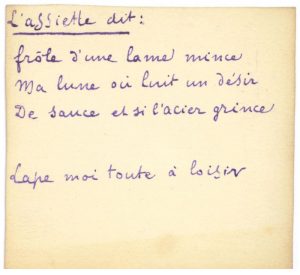 L'assiette dit :
frôle d'une lame mince
Ma lune où luit un désir
De sauce et si l'acier grince
Lape moi toute à loisir